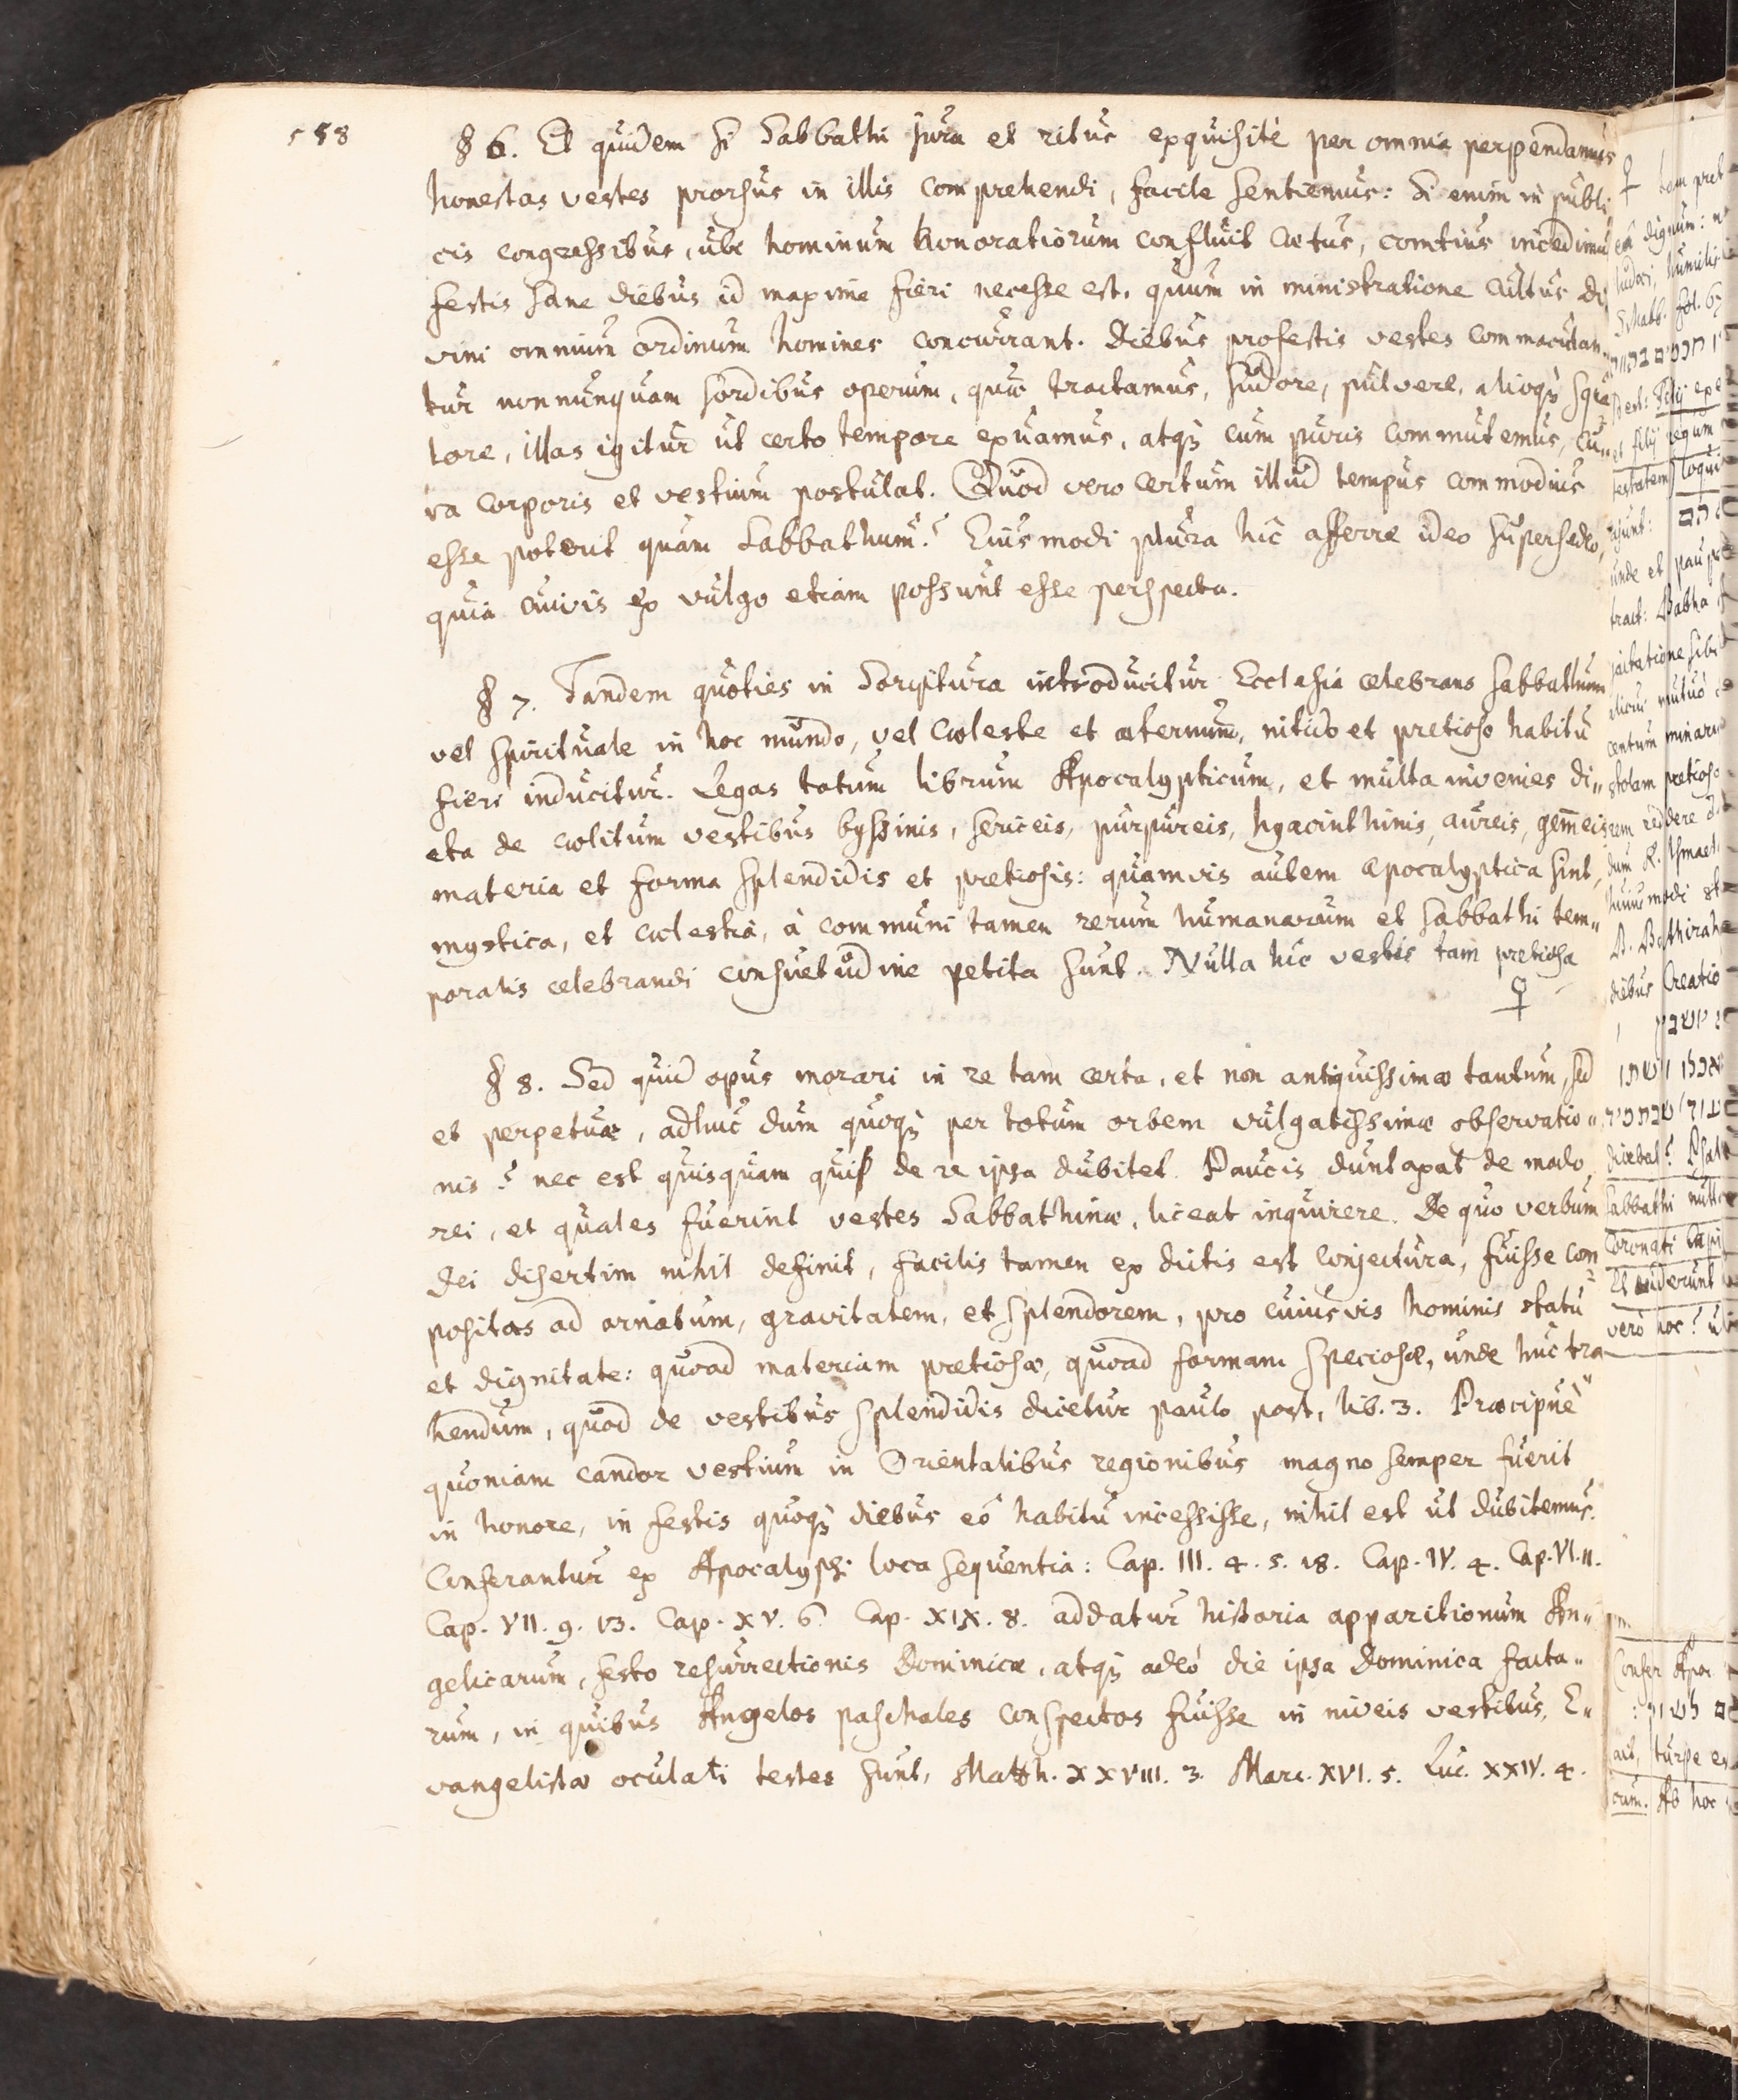 558
§ 6. Et quidem si Sabbathi jura et ritus exquisitè per omnia perpendamus
honestas vestes prorsus in illis comprehendi, facile sentiemus: Si enim in publi
cis congressibus, ubi hominum honoratiorum confluit coetus, comtius incedimus
festis sane diebus id maxime fieri necesse est, quum in ministratione cultus di
vini omnium ordinum homines concurrant. Diebus profestis vestes commaculan
tur nonnunquam sordibus operum, quæ tractamus, sudore, pulvere, alioqȝ squa
lore, illas igitur ut certo tempore exuamus, atqȝ cum puris commutemus, cu„
ra corporis et vestium postulat. Quod vero certum illud tempus commodius
esse poterit quam Sabbathum? Eiusmodi plura hîc afferre ideo supersedeo,
quia cuivis ex vulgo etiam possunt esse perspecta.
§ 7. Tandem quoties in Scriptura introducitur Ecclesia celebrans sabbathum
vel spirituale in hoc mundo, vel coeleste et æternum, nitido et pretioso habitu
fieri inducitur. Legas totum librum Apocalypticum, et multa invenies di„
cta de coelitum vestibus byssinis, sericeis, purpureis, hyacinthinis, aureis, gem̄eis
materia et forma splendidis et pretiosis: quamvis autem apocalyptica sint,
mystica, et coelestia, à communi tamen rerum humanarum et sabbathi tem„
poralis celebrandi consuetudine petita sunt. Nulla hîc vestis tam pretiosa
♀
§ 8. Sed quid opus morari in re tam certa, et non antiquissimæ tantum, sed
et perpetuæ, adhuc dum quoqȝ per totum orbem vulgatissimæ observatio„
nis? nec est quisquam qui de re ipsa dubitet. Paucis duntaxat de modo
rei, et quales fuerint vestes Sabbathinæ, liceat inquirere. De quo verbum
Dei disertim nihil definit, facilis tamen ex dictis est conjectura, fuisse com
positas ad ornatum, gravitatem, et splendorem, pro cuiusvis hominis statu
et dignitate: quoad materiam pretiosæ, quoad formam speciosæ, unde huc tra„
hendum, quod de vestibus splendidis dicetur paulo post, lib. 3. Præcipuè
quoniam candor vestium in Orientalibus regionibus magno semper fuerit
in honore, in festis quoqȝ diebus eô habitu incessisse, nihil est ut dubitemus.
Conferantur ex Apocalyps. loca sequentia: Cap. III. 4. 5. 18. Cap. IV. 4. Cap. VI. 11.
Cap. VII. 9. 13. Cap. XV. 6. Cap. XIX. 8. addatur historia apparitionum An„
gelicarum, festo resurrectionis Dominicæ, atqȝ adeò die ipsa Dominica facta„
rum, in quibus Angelos paschales conspectos fuisse in niveis vestibus, E„
vangelistæ oculati testes sunt, Matth. XXVIII. 3. Marc. XVI. 5. Luc. XXIV. 4.
♀ tam pret
dignum:
Schabb. fol.
est: Filij
et filij regum
testatem loqui
unde et
tract: Babha
mutuò
centum minaru
stolam pretiosa
dum R. Ismael
diebus Creatio
dicebat? Psal
Sabbathi
Coronati
Et viderunt
vero hoc?
Confer Apoc
turpe
Ab hoc